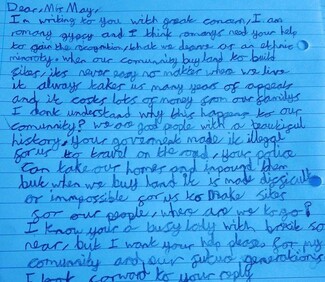 Dear, Mis May,
I'm writing to you with great concern, I am
romany gypsy and I think romanys need your help
to gain the recognition, what we deserve as an ethnic
minority, when our comunity buy land to build
sites, its never easy no matter where we live
it always takes us many years of appeals
and it costs lots of money from our familys
I dont understand why this happens to our
comunity? we are good people with a beautiful
history, your goverment made it illegal
for us to travel on the road, your police
can take our homes and impound them
but when we buy land it is made difficult
or impossible for us to make sites
for our people, where are we to go?
I know your a busy lady with brexit so
near, but I want your help please for my
comunity and our future generations
I look forward to your reply